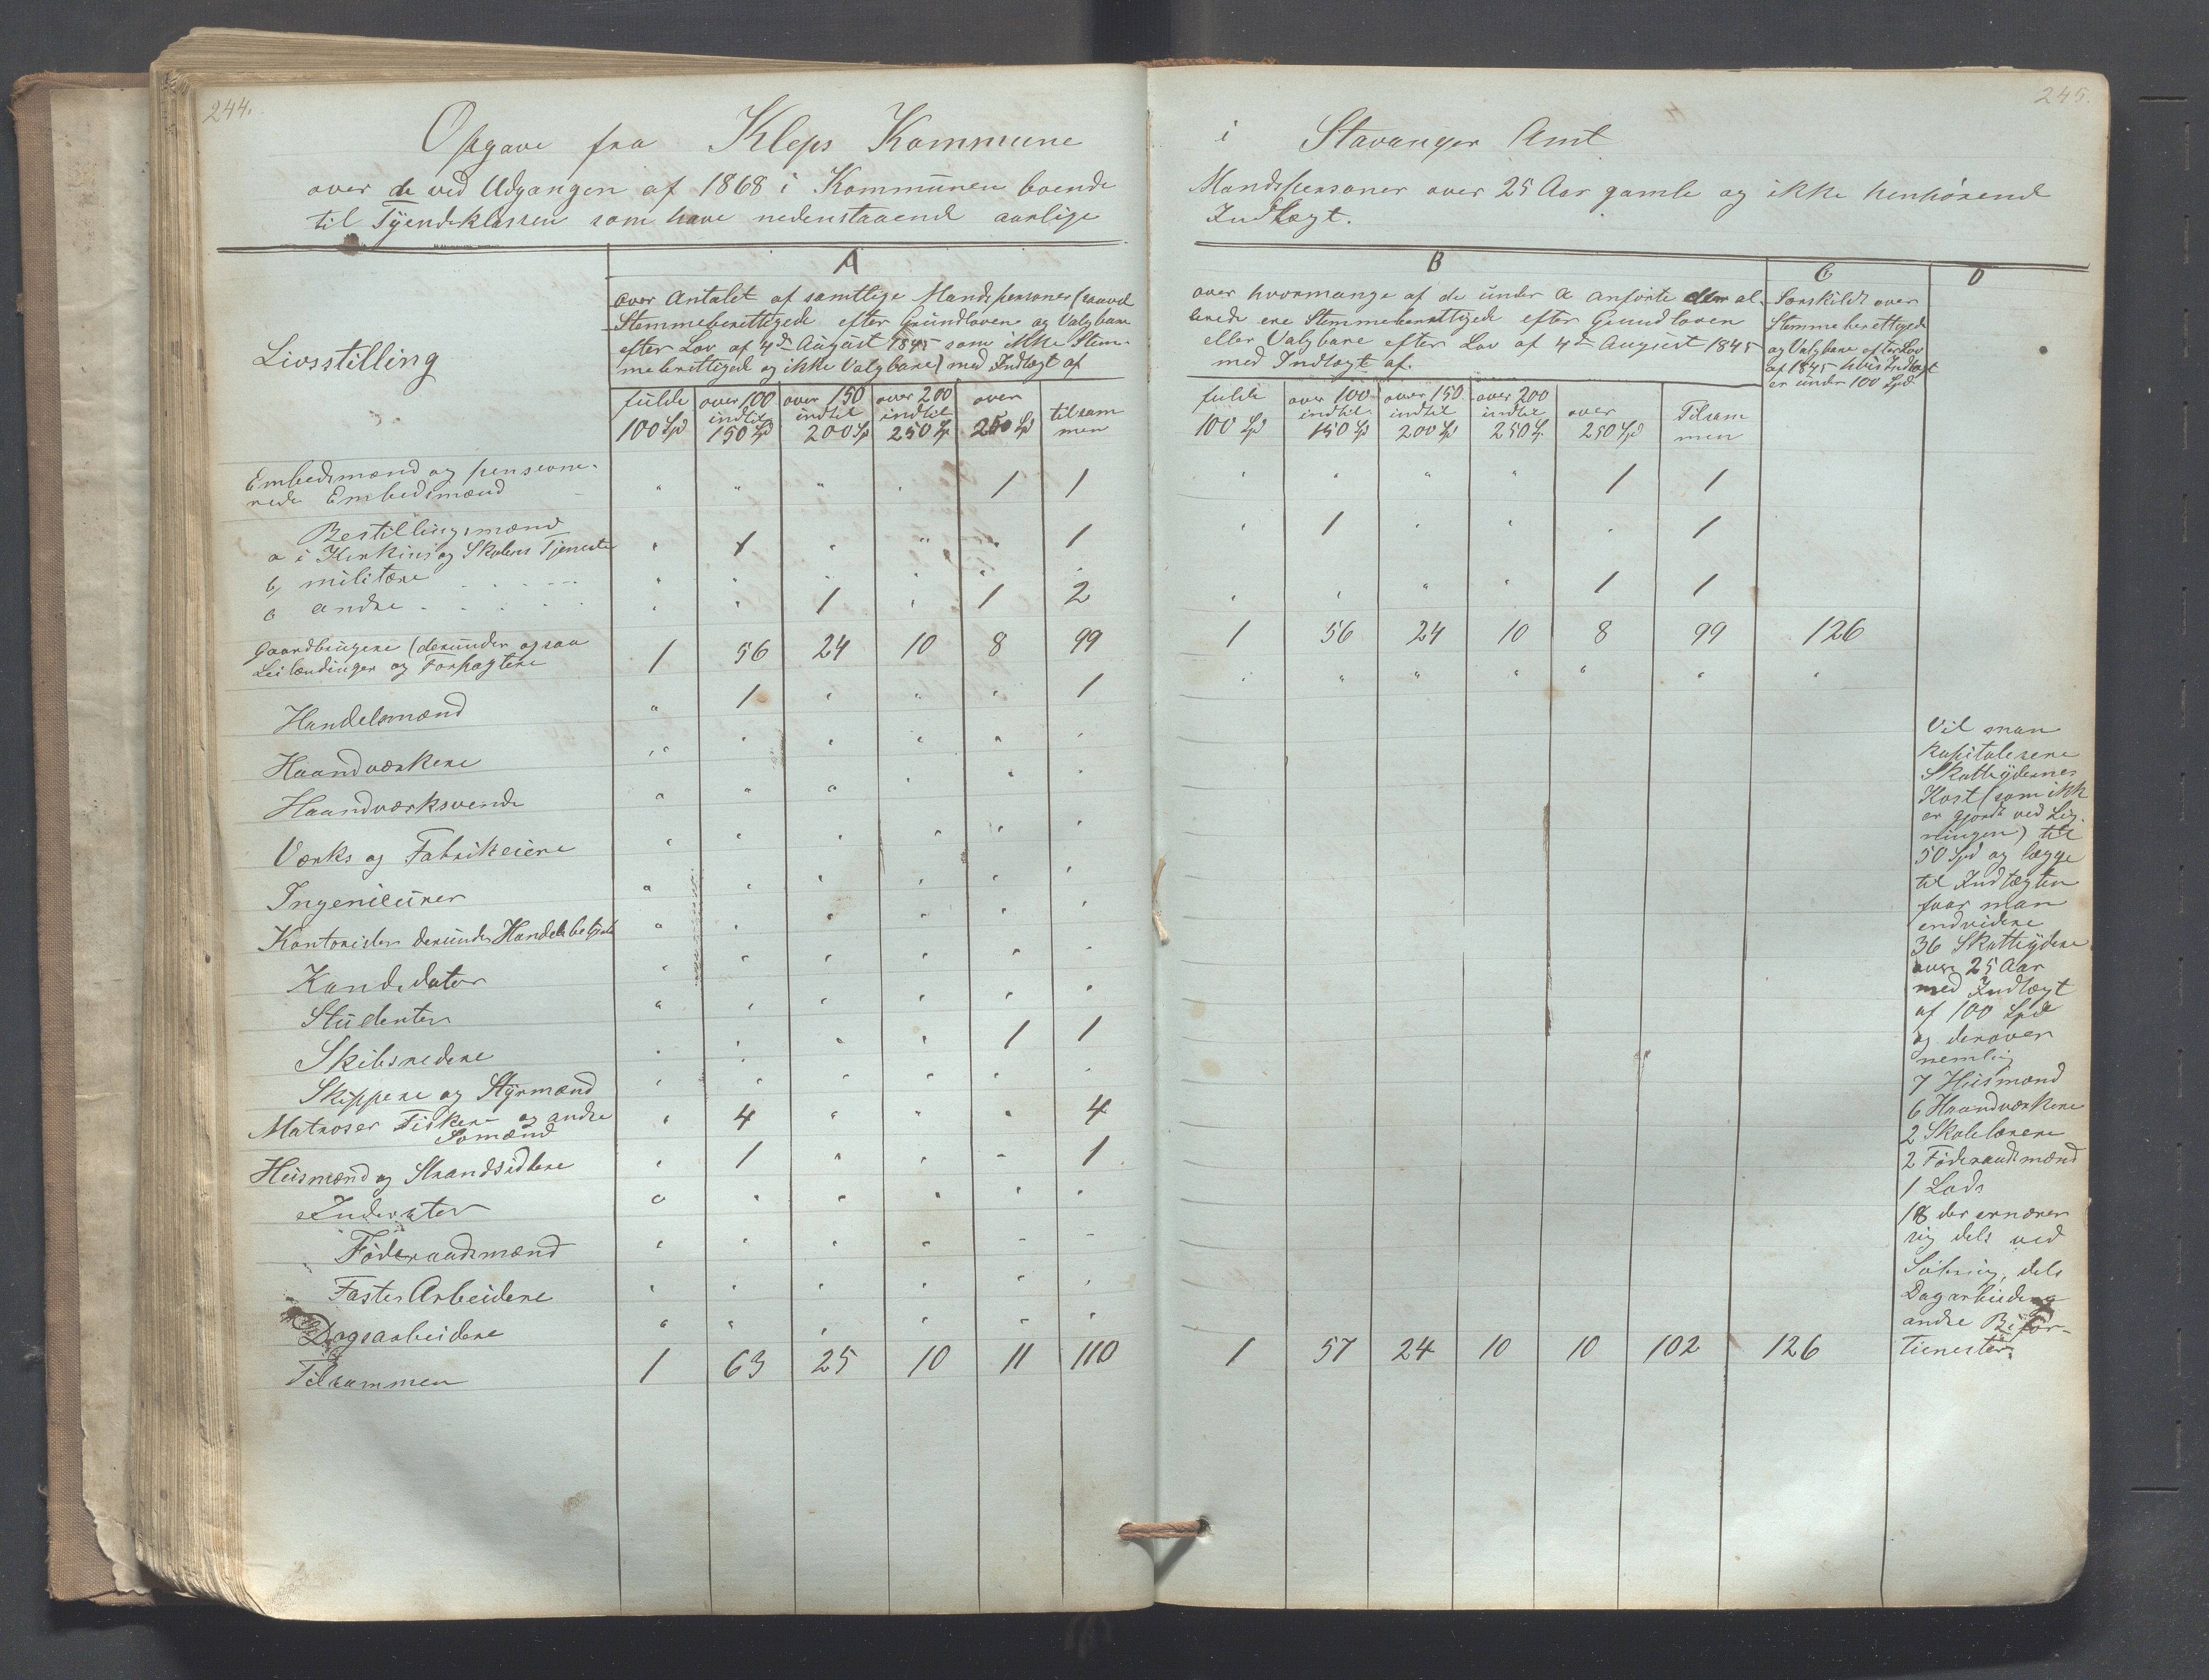 244.
Opgave fra Kleps Kommune
over de ved Udgangen af 1868 i Kommunen boende
til Tyendeklassen som have nedenstaaende aarlige
Livsstilling
A
over Antalet af samtlige Mandspersoner (saavel
Stemmeberettigede efter Grundloven og Valgbare
efter Lov af 4de August 1845 som ikke Stem-
meberettigede og ikke Valgbare) med Indtægt af
fulde 100 Spd
over 100 indtil 150 Spd
over 150 indtil 200 Sp
over 200 indtil 250 Sp
over 250 Spd
tilsam men
Embedsmænd og pensione-
rede Embedsmænd " " " " 1 1
Bestillingsmænd
a i Kirkens og Skolens Tjeneste " 1 " " " 1
b, militære " " " " " "
c andre " " 1 " 1 2
Gaardbrugere (derunder ogsaa
Leilændinger og Forpagtere 1 56 24 10 8 99
Handelsmænd " 1 " " " 1
Haandværkere " " " " " "
Haandværksvende " " " " " "
Værks og Fabrikeiere " " " " " "
Ingenieurer " " " " " "
Kontorister derunder Handelsbetjente " " " " " "
Kandidater " " " " " "
Studenter " " " " " "
Skibsredere " " " " 1 1
Skippere og Styrmænd " " " " " "
Matroser Fiskere og andre
Sømænd " 4 " " " 4
Husmænd og Strandsiddere " 1 " " " 1
Inderster " " " " " "
Föderaadsmænd " " " " " "
Faste Arbeidere " " " " " "
Dagsarbeidere " " " " " "
Tilsammen 1 63 25 10 11 110
245.
i Stavanger Amt
Mandspersoner over 25 Aar gamle og ikke henhörende
Indtægt.
B
over hvormange af de under A anförte der al-
lerede ere Stemmeberettigede efter Grundloven
eller Valgbare efter Lov af 4de August 1845
med Indtægt af.
fulde 100 Spd
over 100 indtil 150 Spd
over 150 indtil 200 Spd
over 200 indtil 250 Sp.
over 250 Spd
Tilsam men
C
Særskildt over
Stemmeberettigede
og Valgbare efter Lov
af 1845 hvis Indtægt
er under 100 Spd
D
" " " " 1 1
" 1 " " " 1
" " " " 1 1
1 56 24 10 8 99 126
" " " " " " "
1 57 24 10 10 102 126
Vil man
kapitalisere
Skatteydernes
Kost (som ikke
er gjort ved Lig-
ningen) til
50 Spd og lægge
til Indtægten
faar man
endvidere
36 Skatteydere
over 25 Aar
med Indtægt
af 100 Spd
og derover
nemlig
7 Husmænd
6 Haandværkere
2 Skolelærere
2 Föderaadsmænd
1 Lods
18 der ernærer
sig dels ved
dels
Dagarbeide og
andre Bifor-
tienester.